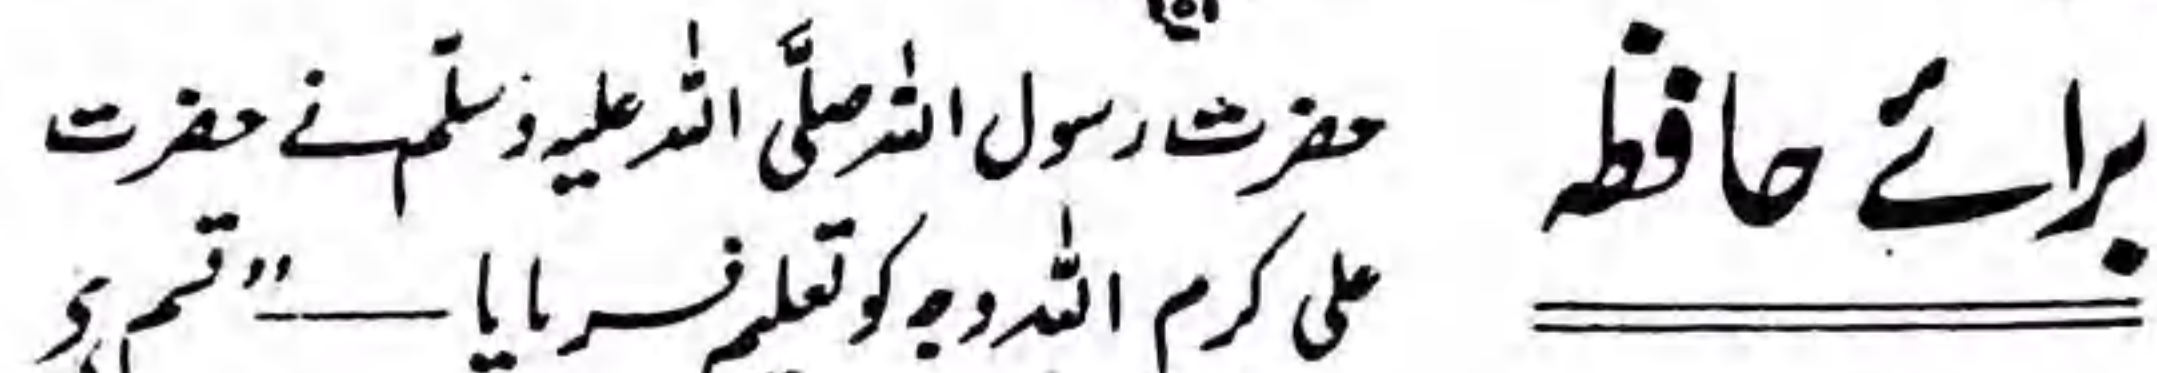 برائے حافظہ
حضرت رسول اللہ صلَّی اللہ علیہ وسلّم نے حضرت
علی کرم اللہ وجہ کو تعلیم فرمایا ــــ "قسم ہے